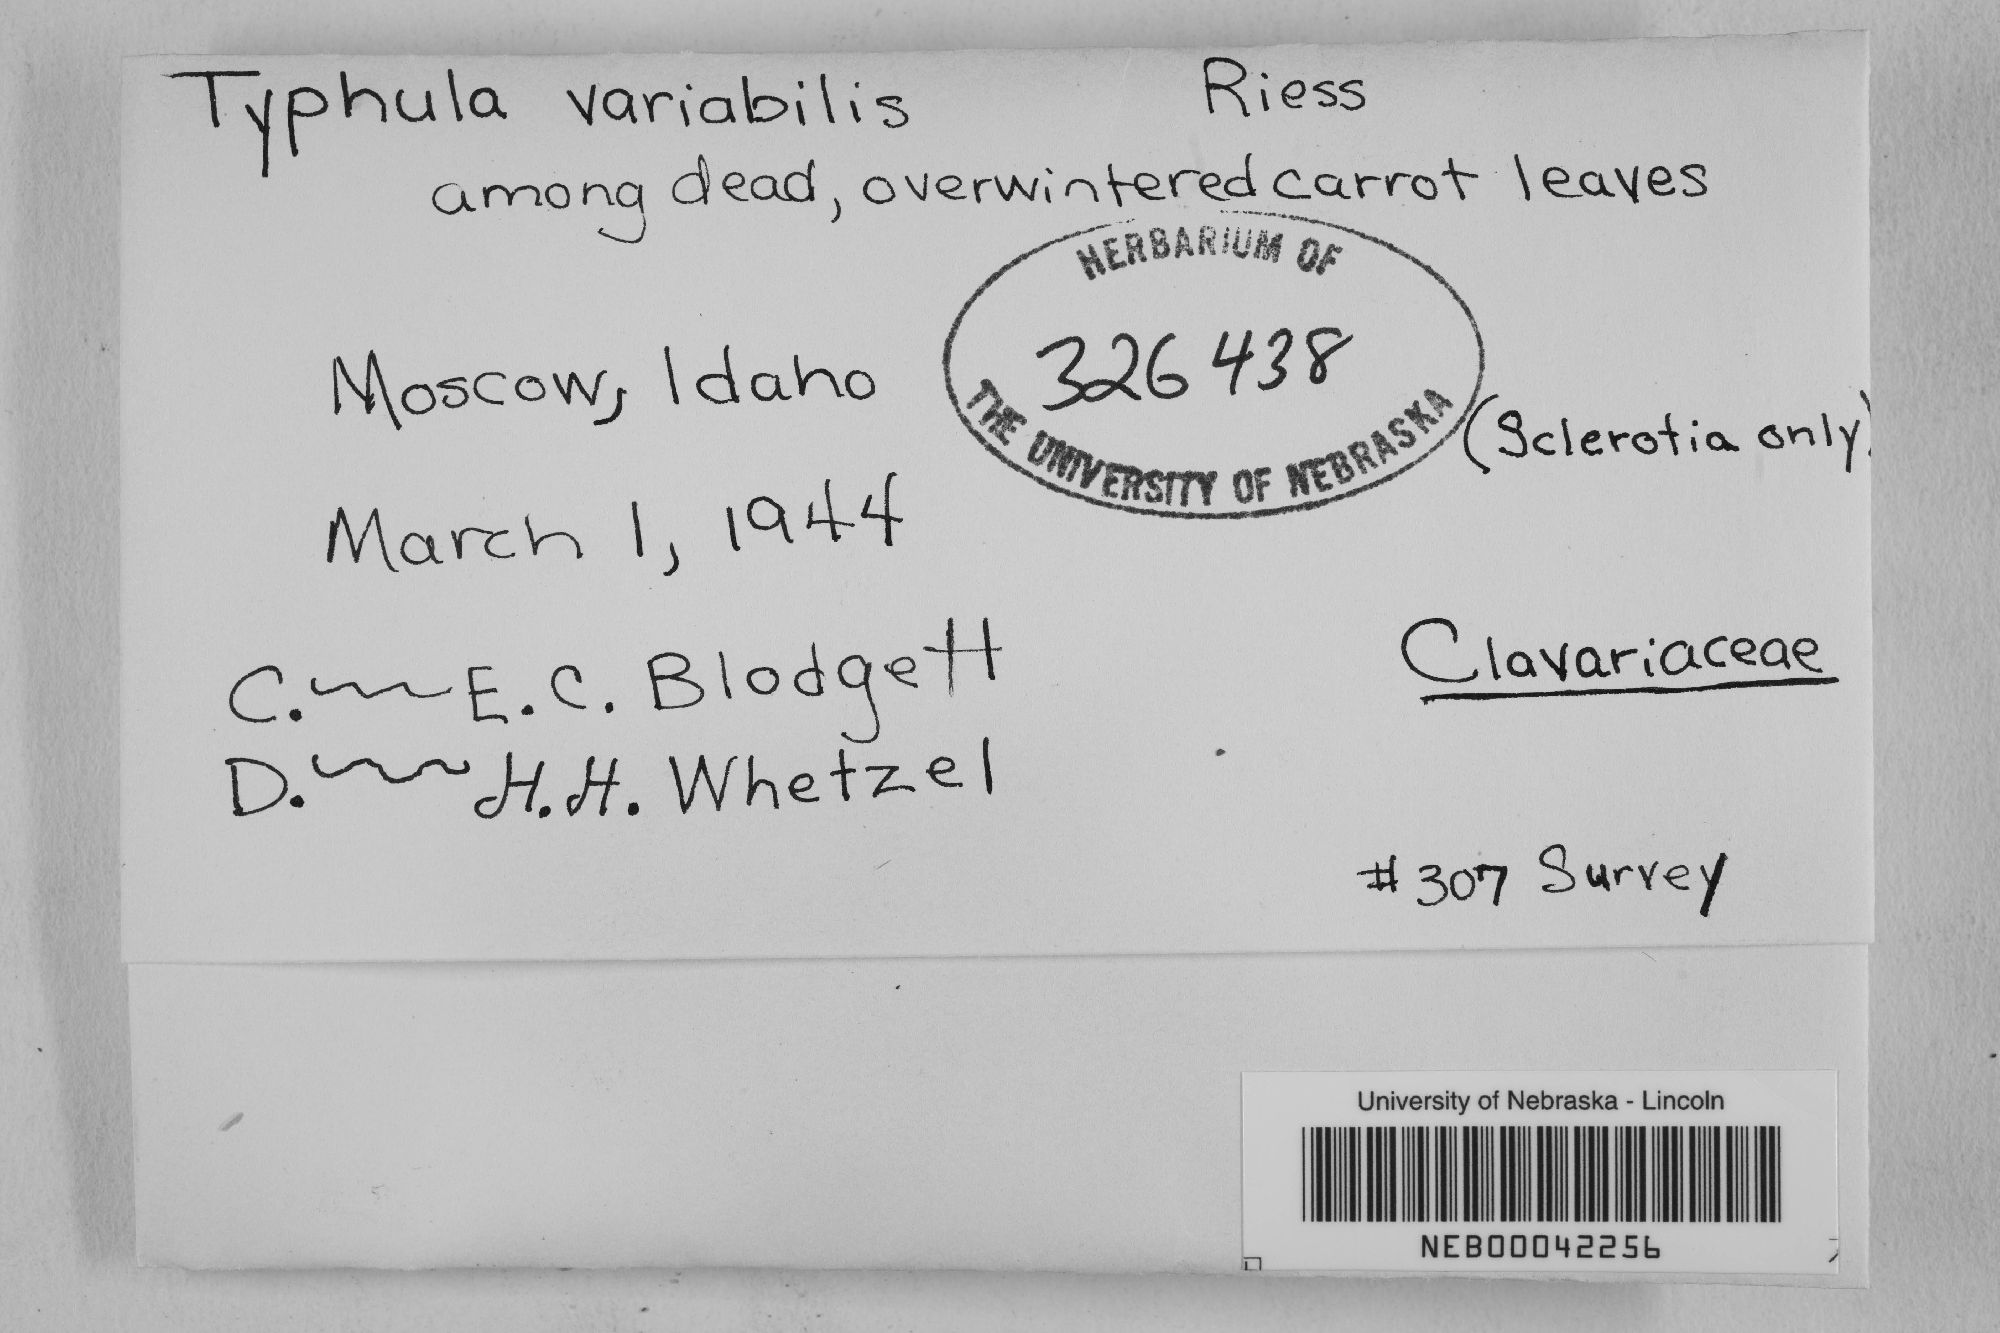 Typhula variabilis Riess
among dead, overwintered carrot leaves
HERBARIUM OF
326438
THE UNIVERSITY OF NEBRASKA
Moscow, Idaho
(Sclerotia only)
March 1, 1944
C. E.C. Blodgett
Clavariaceae
D. H.H. Whetzel
#307 Survey
University of Nebraska - Lincoln
NEB00042256